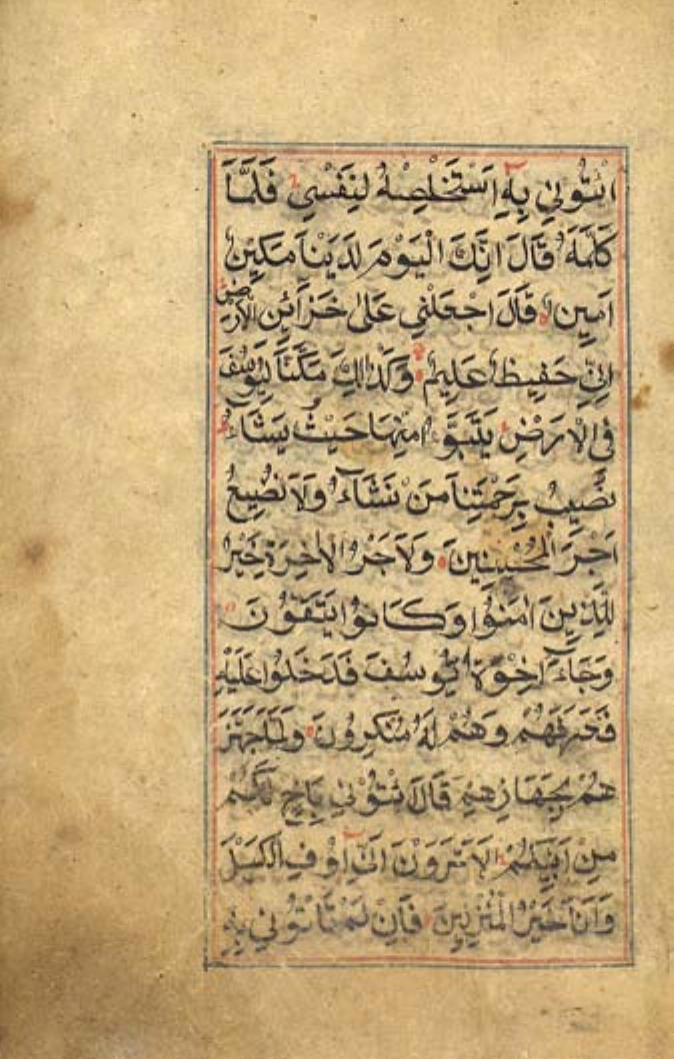 ائْتُونِي بِهِ اَسْتَخْلِصْهُ لِنَفْسِي فَلَمَّا
كَلَّمَهُ قَالَ اِنَّكَ الْيَوْمَ لَدَيْنَا مَكِينٌ
اَمِينٌ قَالَ اجْعَلْنِي عَلٰى خَزَائِنِ الْاَرْضِ
اِنِّي حَفِيظٌ عَلِيمٌ وَكَذٰلِكَ مَكَّنَّا لِيُوسُفَ
فِي الْاَرْضِ يَتَبَوَّءُ مِنْهَا حَيْثُ يَشَآءُ
نُصِيبُ بِرَحْمَتِنَا مَنْ نَشَآءُ وَلَا نُضِيعُ
اَجْرَ الْمُحْسِنِينَ وَلَاَجْرُ الْاٰخِرَةِ خَيْرٌ
لِلَّذِينَ اٰمَنُوا وَكَانُوا يَتَّقُونَ
وَجَآءَ اِخْوَةُ يُوسُفَ فَدَخَلُوا عَلَيْهِ
فَعَرَفَهُمْ وَهُمْ لَهُ مُنْكِرُونَ وَلَمَّا جَهَّزَ
هُمْ بِجَهَازِهِمْ قَالَ ائْتُونِي بِاَخٍ لَكُمْ
مِنْ اَبِيكُمْ اَلَا تَرَوْنَ اَنِّي اُوفِ الْكَيْلَ
وَاَنَا خَيْرُ الْمُنْزِلِينَ فَاِنْ لَمْ تَاْتُونِي بِهِ